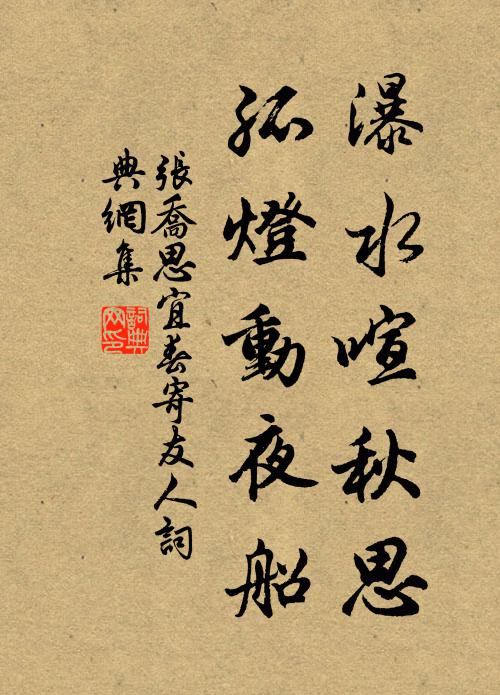 瀑水喧秋思
孤燈動夜船
張喬思宜春寄友人詞
典網集
詞典
网印